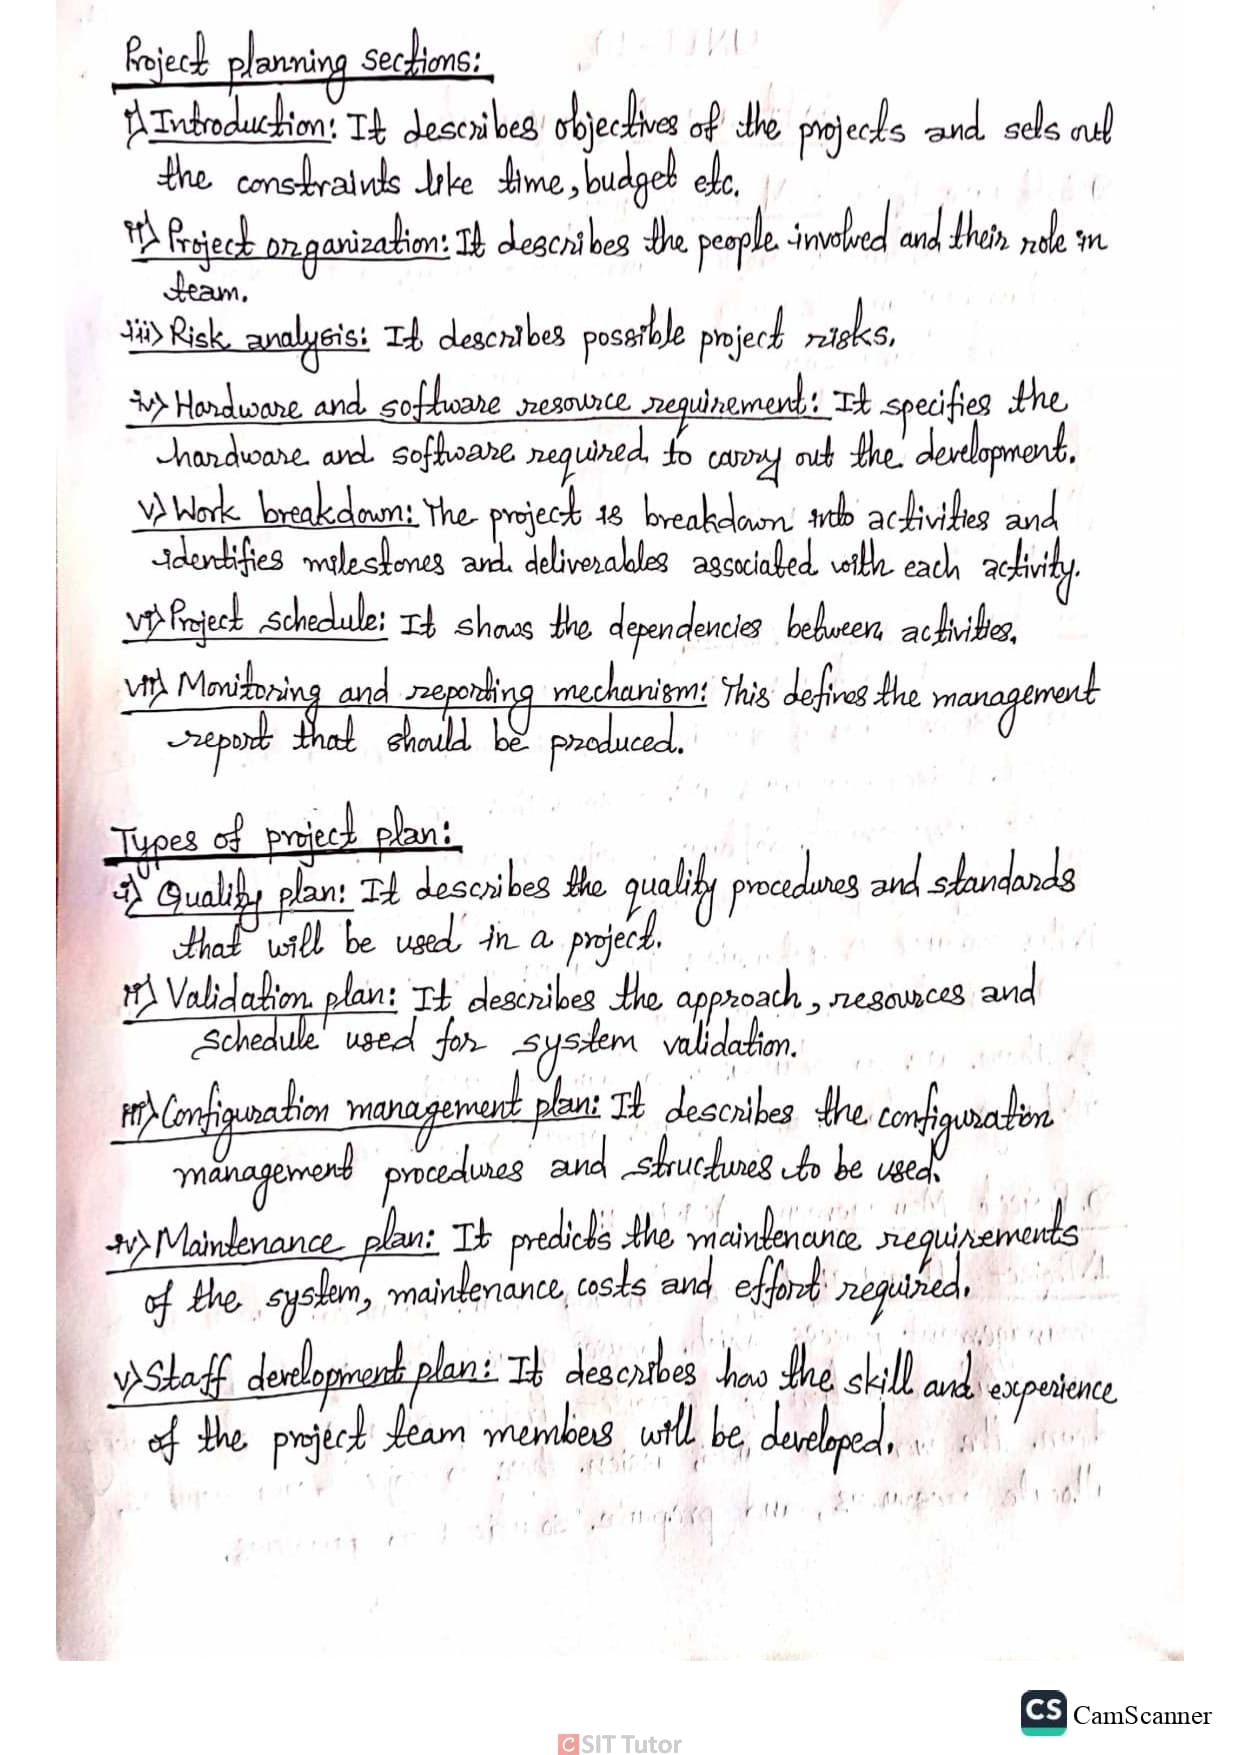 Project planning sections:
i) Introduction: It describes objectives of the projects and sets out
the constraints like time, budget etc.
ii) Project organization: It describes the people involved and their role in
team.
iii) Risk analysis: It describes possible project risks.
iv) Hardware and software resource requirement: It specifies the
hardware and software required to carry out the development.
v) Work breakdown: The project is breakdown into activities and
identifies milestones and deliverables associated with each activity.
vi) Project schedule: It shows the dependencies between activities.
vii) Monitoring and reporting mechanism: This defines the management
report that should be produced.
Types of project plan:
i) Quality plan: It describes the quality procedures and standards
that will be used in a project.
ii) Validation plan: It describes the approach, resources and
schedule used for system validation.
iii) Configuration management plan: It describes the configuration
management procedures and structures to be used.
iv) Maintenance plan: It predicts the maintenance requirements
of the system, maintenance costs and effort required.
v) Staff development plan: It describes how the skill and experience
of the project team members will be developed.
CS CamScanner
CSIT Tutor